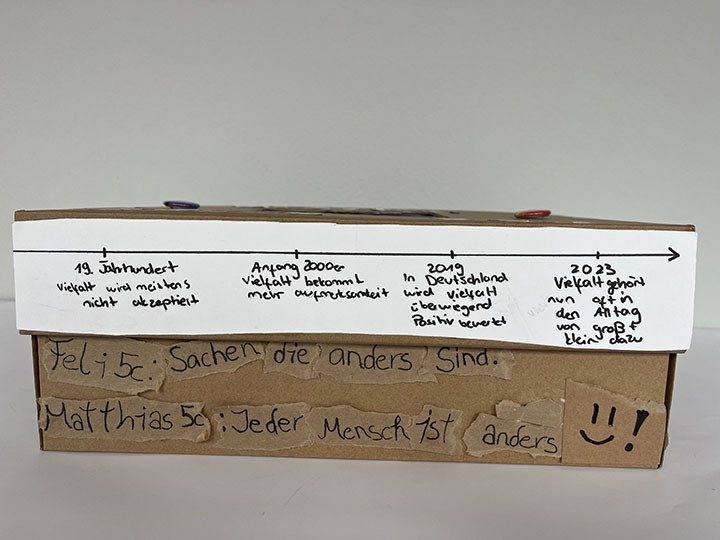 19. Jahrhundert
Vielfalt wird meistens
nicht akzeptiert
Anfang 2000er
Vielfalt bekommt
mehr aufmerksamkeit
2019
In Deutschland
wird Vielfalt
überwiegend
Positiv bewertet
2023
Vielfalt gehört
nun oft in
den Alltag
von groß +
klein dazu
Feli 5c: Sachen die anders Sind.
Matthias 5c: Jeder Mensch ist anders
!